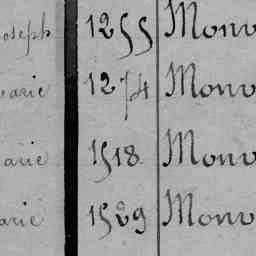 oseph 1255 Monv
arie 1274 Monv
arie 1518 Monv
arie 1529 Monv